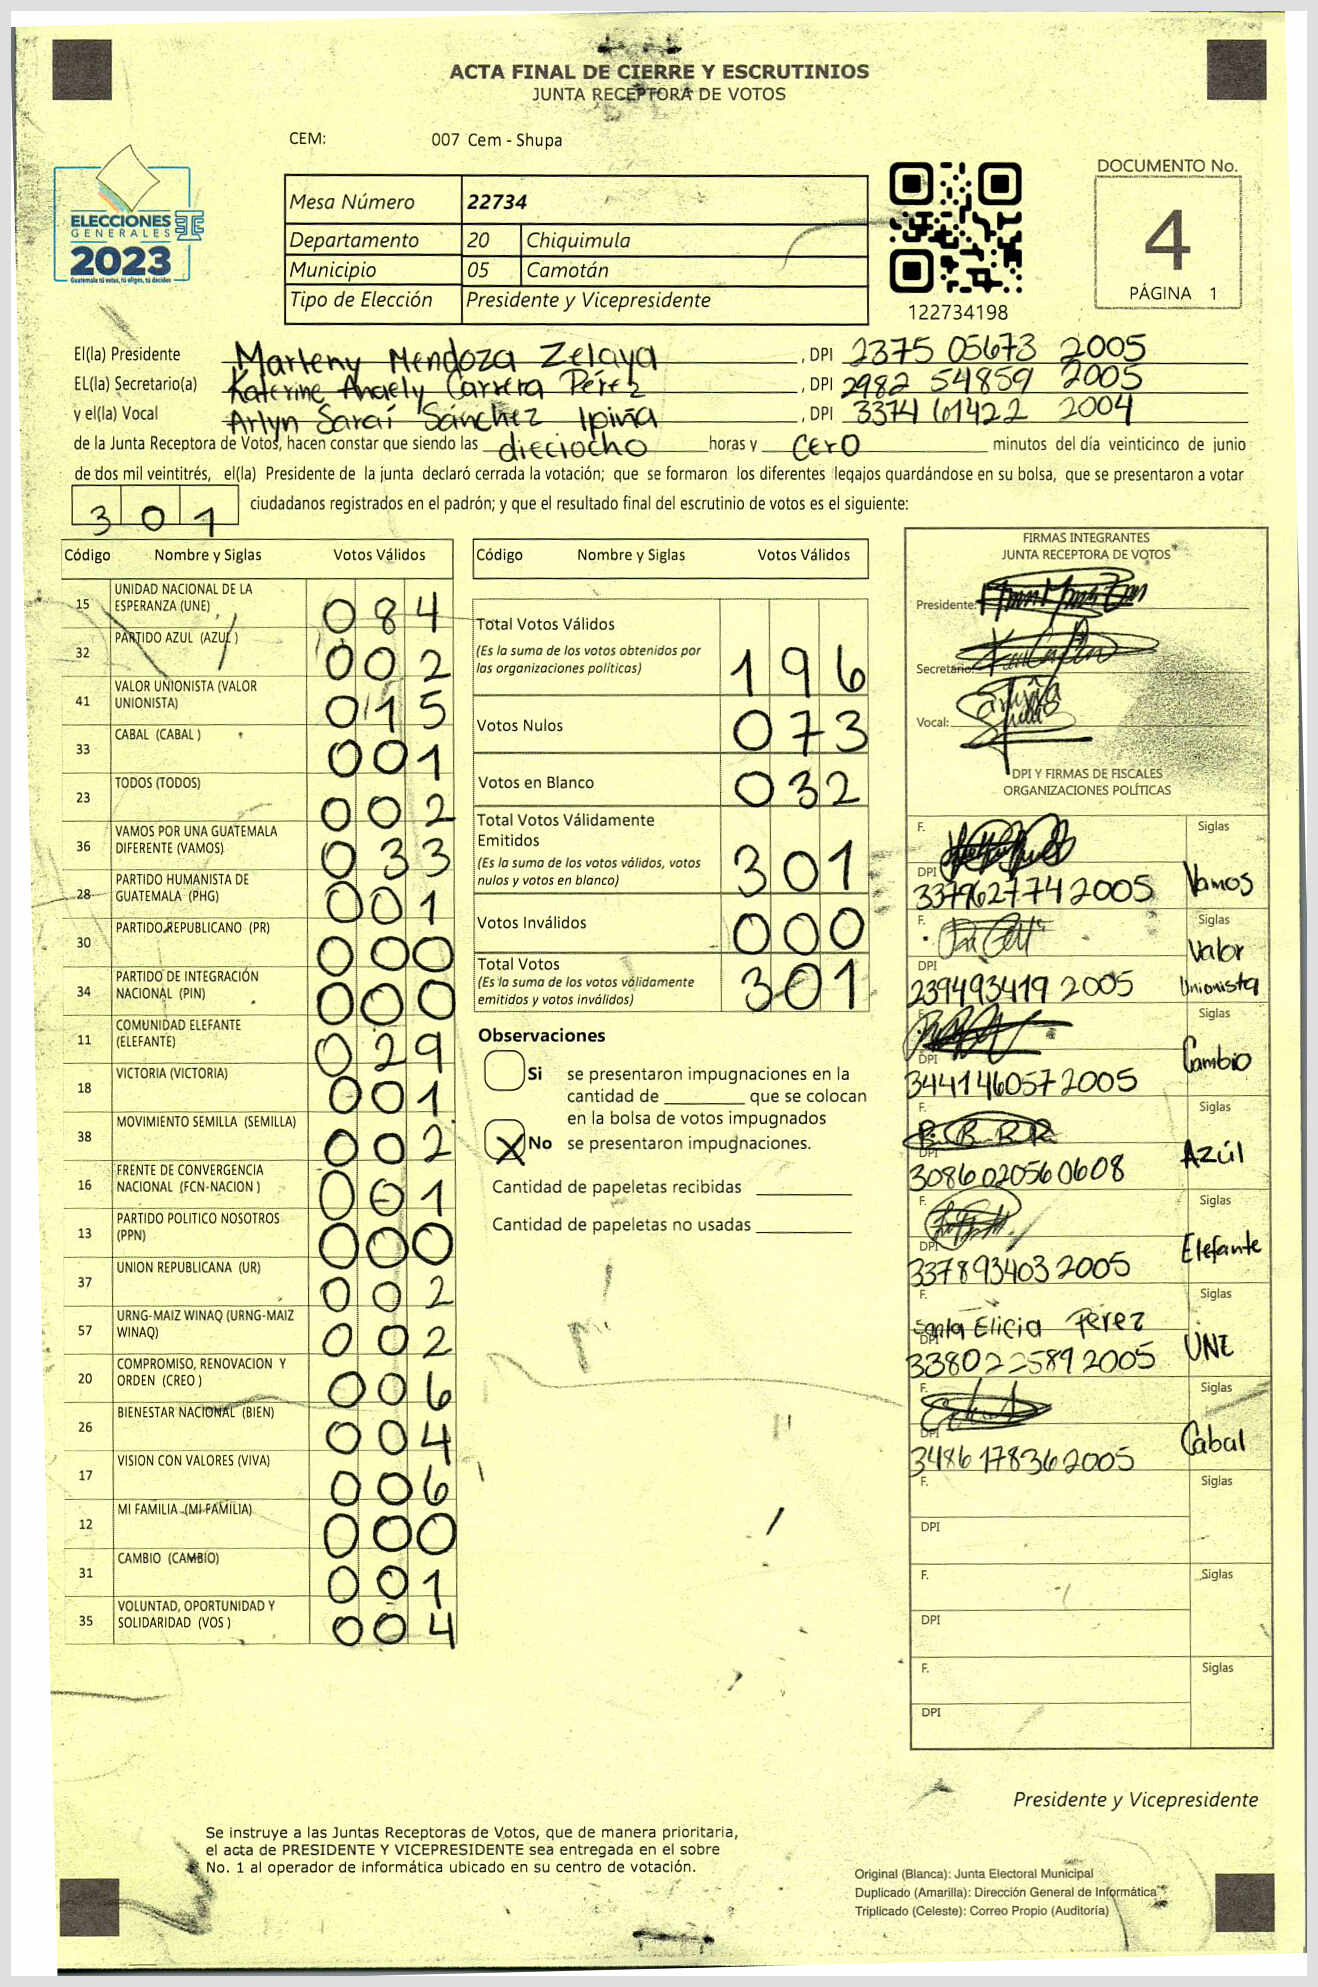 ACTA FINAL DE CIERRE Y ESCRUTINIOS
JUNTA RECEPTORA DE VOTOS
CEM: 007 Cem - Shupa
ELECCIONES
GENERALES
2023
Guatemala tú votas, tú eliges, tú decides
Mesa Número 22734
Departamento 20 Chiquimula
Municipio 05 Camotán
Tipo de Elección Presidente y Vicepresidente
122734198
DOCUMENTO No.
4
PÁGINA 1
El(la) Presidente Marleny Mendoza Zelaya , DPI 2375 05673 2005
EL(la) Secretario(a) Katerine Anaely Carrera Pérez , DPI 2982 54859 2005
y el(la) Vocal Arlyn Saraí Sánchez Ipiña , DPI 3374 61422 2004
de la Junta Receptora de Votos, hacen constar que siendo las dieciocho horas y cero minutos del día veinticinco de junio
de dos mil veintitrés, el(la) Presidente de la junta declaró cerrada la votación; que se formaron los diferentes legajos quardándose en su bolsa, que se presentaron a votar
301 ciudadanos registrados en el padrón; y que el resultado final del escrutinio de votos es el siguiente:
Código Nombre y Siglas Votos Válidos
15 UNIDAD NACIONAL DE LA ESPERANZA (UNE) 084
32 PARTIDO AZUL (AZUL ) 002
41 VALOR UNIONISTA (VALOR UNIONISTA) 015
33 CABAL (CABAL ) 001
23 TODOS (TODOS) 002
36 VAMOS POR UNA GUATEMALA DIFERENTE (VAMOS) 033
28 PARTIDO HUMANISTA DE GUATEMALA (PHG) 001
30 PARTIDO REPUBLICANO (PR) 000
34 PARTIDO DE INTEGRACIÓN NACIONAL (PIN) 000
11 COMUNIDAD ELEFANTE (ELEFANTE) 029
18 VICTORIA (VICTORIA) 001
38 MOVIMIENTO SEMILLA (SEMILLA) 002
16 FRENTE DE CONVERGENCIA NACIONAL (FCN-NACION ) 001
13 PARTIDO POLITICO NOSOTROS (PPN) 000
37 UNION REPUBLICANA (UR) 002
57 URNG-MAIZ WINAQ (URNG-MAIZ WINAQ) 002
20 COMPROMISO, RENOVACION Y ORDEN (CREO ) 006
26 BIENESTAR NACIONAL (BIEN) 004
17 VISION CON VALORES (VIVA) 006
12 MI FAMILIA (MI FAMILIA) 000
31 CAMBIO (CAMBIO) 001
35 VOLUNTAD, OPORTUNIDAD Y SOLIDARIDAD (VOS ) 004
Código Nombre y Siglas Votos Válidos
Total Votos Válidos
(Es la suma de los votos obtenidos por
las organizaciones políticas) 196
Votos Nulos 073
Votos en Blanco 032
Total Votos Válidamente
Emitidos
(Es la suma de los votos válidos, votos
nulos y votos en blanco) 301
Votos Inválidos 000
Total Votos
(Es la suma de los votos válidamente
emitidos y votos inválidos) 301
Observaciones
Si se presentaron impugnaciones en la
cantidad de ________ que se colocan
en la bolsa de votos impugnados
X No se presentaron impugnaciones.
Cantidad de papeletas recibidas
Cantidad de papeletas no usadas
FIRMAS INTEGRANTES
JUNTA RECEPTORA DE VOTOS
Presidente:
Secretario:
Vocal:
DPI Y FIRMAS DE FISCALES
ORGANIZACIONES POLÍTICAS
F. Siglas
DPI 3379627742005 Vamos
F. Siglas
DPI 2394934192005 Valor Unionista
F. Siglas
DPI 3441460572005 Cambio
F. Siglas
DPI 3086020560608 Azúl
F. Siglas
DPI 3378934032005 Elefante
F. Santa Elicia Pérez Siglas
DPI 3380225892005 UNE
F. Siglas
DPI 3486178362005 Cabal
F. Siglas
DPI
F. Siglas
DPI
F. Siglas
DPI
Presidente y Vicepresidente
Se instruye a las Juntas Receptoras de Votos, que de manera prioritaria,
el acta de PRESIDENTE Y VICEPRESIDENTE sea entregada en el sobre
No. 1 al operador de informática ubicado en su centro de votación.
Original (Blanca): Junta Electoral Municipal
Duplicado (Amarilla): Dirección General de Informática
Triplicado (Celeste): Correo Propio (Auditoría)